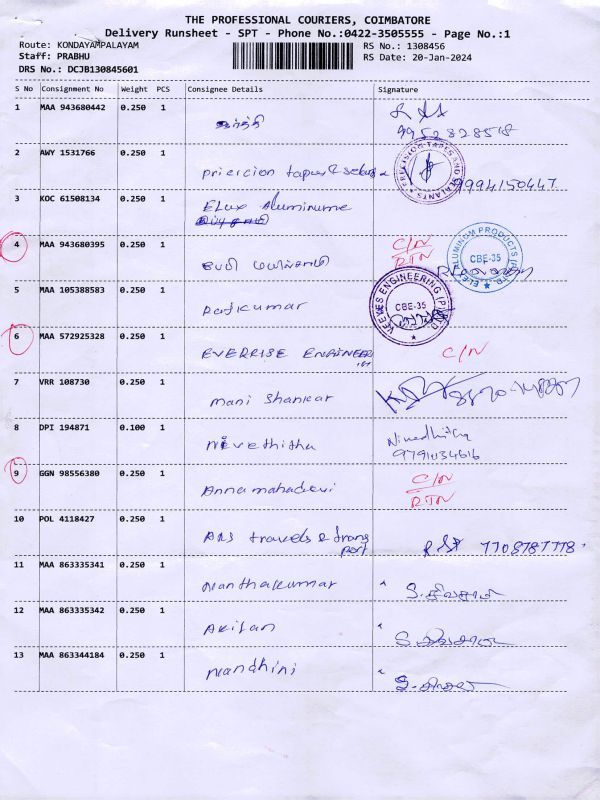 THE PROFESSIONAL COURIERS, COIMBATORE
Delivery Runsheet - SPT - Phone No.:0422-3505555 - Page No.:1
Route: KONDAYAMPALAYAM RS No.: 1308456
Staff: PRABHU RS Date: 20-Jan-2024
DRS No.: DCJB130845601
S No Consignment No Weight PCS Consignee Details Signature
1 MAA 943680442 0.250 1
9952828518
2 AWY 1531766 0.250 1
PRECISION TAPES AND SEALANTS
9994150447
3 KOC 61508134 0.250 1 ELux Aluminume
4 MAA 943680395 0.250 1 C/N
RTN
ALUMINUM PRODUCTS (P) LTD
CBE-35
5 MAA 105388583 0.250 1 Rajkumar
VEEYES ENGINEERING (P) LTD
CBE-35
6 MAA 572925328 0.250 1 EVERRISE ENGINEER C/N
7 VRR 108730 0.250 1 Mani Shankar
8 DPI 194871 0.100 1 Nivethitha
9791034616
9 GGN 98556380 0.250 1 Annamahadevi C/N
RTN
10 POL 4118427 0.250 1 ARS travels & trans
port 7708787778
11 MAA 863335341 0.250 1 Nanthakumar
12 MAA 863335342 0.250 1 Akilan
13 MAA 863344184 0.250 1 Nandhini